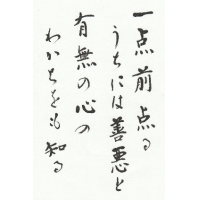 一点前点る
うちには善悪と
有無の心の
わかちをも知る